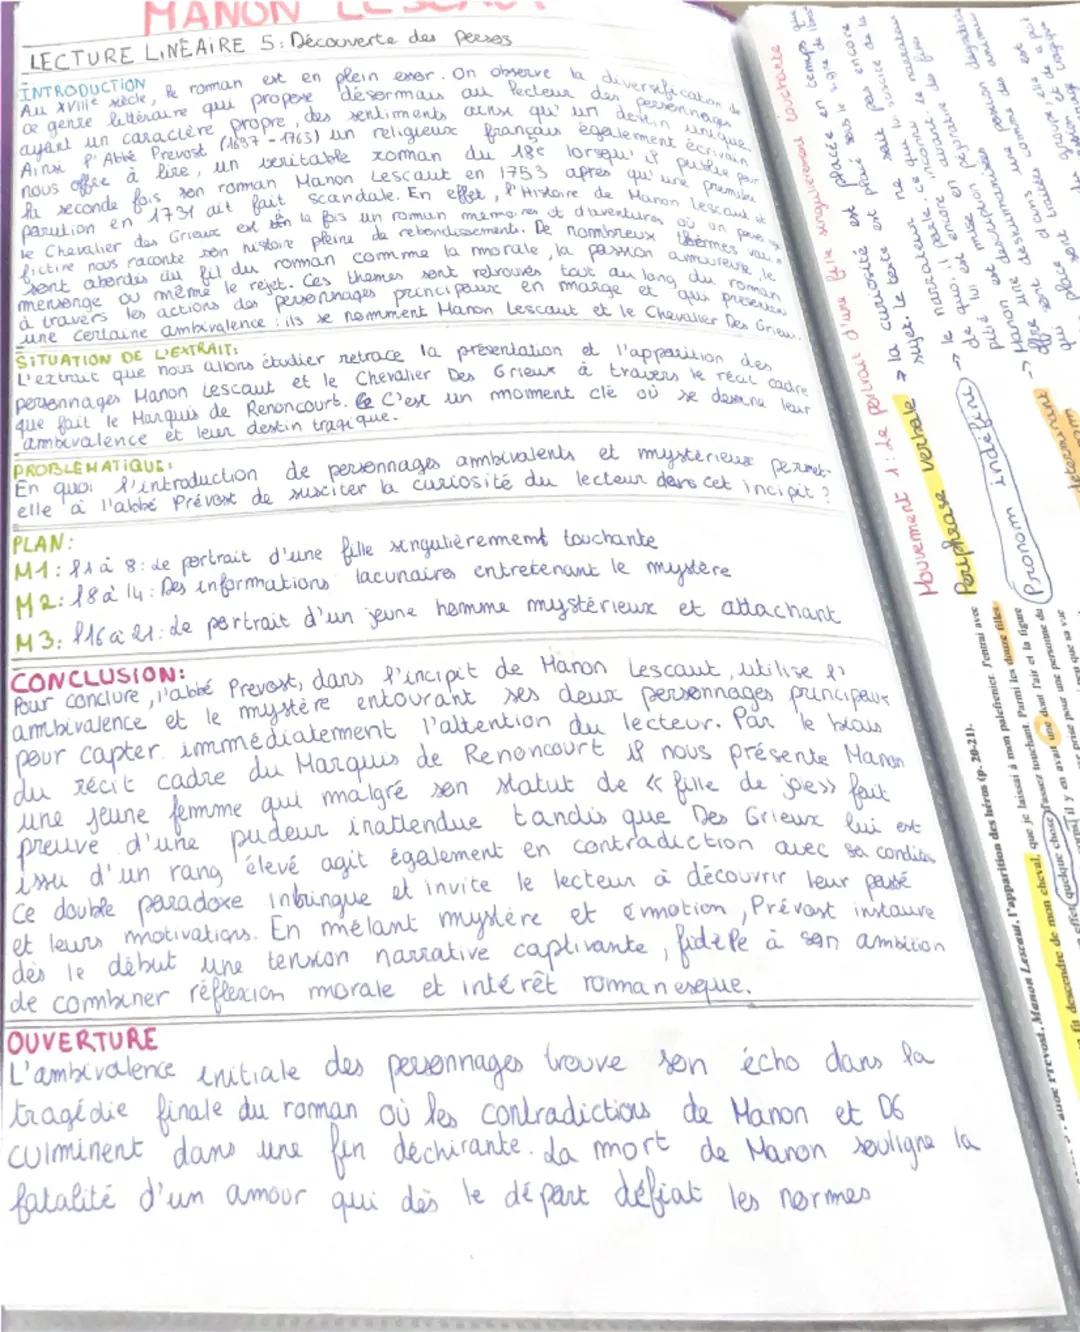 MANON LESCAUT
LECTURE LINÉAIRE 5: Découverte des persos
INTRODUCTION
Au XVIIIe siècle, le roman est en plein essor. On observe la diversification de
ce genre littéraire qui propose désormais au lecteur des personnages
ayant un caractère propre, des sentiments ainsi qu'un destin unique.
Ainsi l'Abbé Prevost (1697-1763) un religieux français également écrivain
nous offre à lire, un veritable roman du 18e lorsqu'il publie pour
la seconde fois son roman Manon Lescaut en 1753 apres qu'une première
parution en 1731 ait fait scandale. En effet, l'Histoire de Manon Lescaut et
le Chevalier des Grieux est à la fois un roman memoires et d'aventures où un perso
fictire nous raconte son histoire pleine de rebondissements. De nombreux thèmes
sont abordés au fil du roman comme la morale, la passion amoureuse, le
mensonge ou même le rejet. Ces themes sont retrouvés tout au long du roman
à travers les actions des personnages principaux en marge et qui presentent
une certaine ambivalence : ils se nomment Manon Lescaut et le Chevalier Des Grieux.
SITUATION DE L'EXTRAIT:
L'extrait que nous allons étudier retrace la présentation et l'apparition des
personnages Manon Lescaut et le Chevalier Des Grieux à travers le récit cadre
que fait le Marquis de Renoncourt. C'est un moment clé où se dessine leur
ambivalence et leur destin tragique.
PROBLEMATIQUE:
En quoi l'introduction de personnages ambivalents et mystérieux permet-
elle à l'abbé Prévost de susciter la curiosité du lecteur dans cet incipit ?
PLAN:
M1: l1 à 8: Le portrait d'une fille singulièrement touchante
M2: l8 à 14: Des informations lacunaires entretenant le mystère
M3: l16 à 21: Le portrait d'un jeune homme mystérieux et attachant
CONCLUSION:
Pour conclure, l'abbé Prevost, dans l'incipit de Manon Lescaut, utilise l'
ambivalence et le mystère entourant ses deux personnages principaux
pour capter immédiatement l'attention du lecteur. Par le biais
du récit cadre du Marquis de Renoncourt il nous présente Manon
une jeune femme qui malgré son statut de << fille de joie>> fait
preuve d'une pudeur inattendue tandis que Des Grieux lui est
issu d'un rang élevé agit également en contradiction avec sa condition
Ce double paradoxe intrigue et invite le lecteur à découvrir leur passé
et leurs motivations. En mêlant mystère et émotion, Prévost instaure
dès le début une tension narrative captivante, fidèle à son ambition
de combiner réflexion morale et intérêt romanesque.
OUVERTURE
L'ambivalence initiale des personnages trouve son écho dans la
tragédie finale du roman où les contradictions de Manon et DG
culminent dans une fin déchirante. La mort de Manon souligne la
fatalité d'un amour qui dès le départ défiat les normes
Mouvement 1: Le portrait d'une fille singulièrement touchante
Periphrase verbale → la curiosité est placée en temps que
sujet. Le texte est placé sous le signe de
Pronom indéfini → le narrateur ne sait pas encore
de quoi il parle
déterminant
Manon Lescaut, l'apparition des héros (p. 20-21).
fit descendre de mon cheval, que je laissai à mon palefrenier. J'entrai avec
effet quelque chose d'assez touchant. Parmi les douze filles
il y en avait une dont l'air et la figure
prise pour une personne du
peu que sa vue